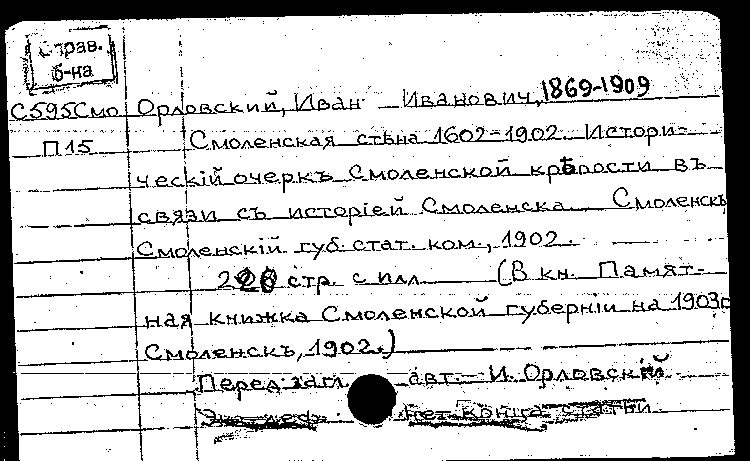 Справ.
б-на
С595Смо Орловский, Иван Иванович, 1869-1909
П15 Смоленская стѣна 1602-1902. Истори-
ческій очеркъ Смоленской крѣпости въ
связи съ исторіей Смоленска. Смоленскъ
Смоленскій губ. стат. ком., 1902.
стр. с илл. (В кн. Памят-
ная книжка Смоленской губерніи на 1903г
Смоленскъ, 1902.)
Перед загл. авт. И. Орловскій
нет конца статьи